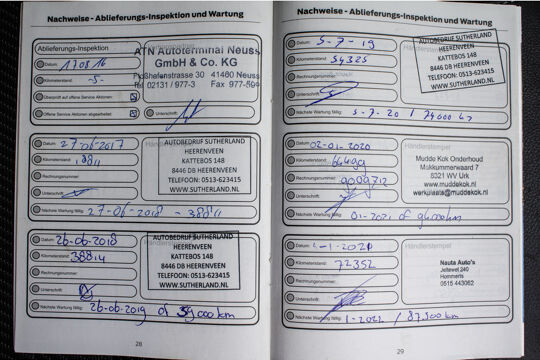 Nachweise - Ablieferungs-Inspektion und Wartung
Ablieferungs-Inspektion
Datum: 170816
Kilometerstand: -5-
Überprüft auf offene Service Aktionen:
Offene Service Aktionen abgearbeitet:
Unterschrift:
ATN Autoterminal Neuss
GmbH & Co. KG
Floßhafenstrasse 30 41460 Neuss
Tel 02131 / 977-3 Fax 977-509
Datum: 27-06-2017
Kilometerstand: 18811
Rechnungsnummer:
Unterschrift:
Nächste Wartung fällig: 27-06-2018 - 38811
AUTOBEDRIJF SUTHERLAND
HEERENVEEN
KATTEBOS 148
8446 DB HEERENVEEN
TELEFOON: 0513-623415
WWW.SUTHERLAND.NL
Datum: 26-06-2018
Kilometerstand: 38814
Rechnungsnummer:
Unterschrift:
Nächste Wartung fällig: 26-06-2019 of 59000km
AUTOBEDRIJF SUTHERLAND
HEERENVEEN
KATTEBOS 148
8446 DB HEERENVEEN
TELEFOON: 0513-623415
WWW.SUTHERLAND.NL
28
Nachweise - Ablieferungs-Inspektion und Wartung
Datum: 5-7-19
Kilometerstand: 54325
Rechnungsnummer:
Unterschrift:
Nächste Wartung fällig: 5-7-20 / 74000 km
AUTOBEDRIJF SUTHERLAND
HEERENVEEN
KATTEBOS 148
8446 DB HEERENVEEN
TELEFOON: 0513-623415
WWW.SUTHERLAND.NL
Datum: 02-01-2020
Kilometerstand: 66499
Rechnungsnummer: 9009712
Unterschrift:
Nächste Wartung fällig: 01-2021 of
Händlerstempel
Mudde Kok Onderhoud
Mukkumerwaard 7
8321 WV Urk
www.muddekok.nl
werkplaats@muddekok.nl
Datum: -1-2021
Kilometerstand: 72352
Rechnungsnummer:
Unterschrift:
Nächste Wartung fällig: 1-2022 / 87.500km
Händlerstempel
Nauta Auto's
Jeltewei 240
Hommerts
0515 443062
29